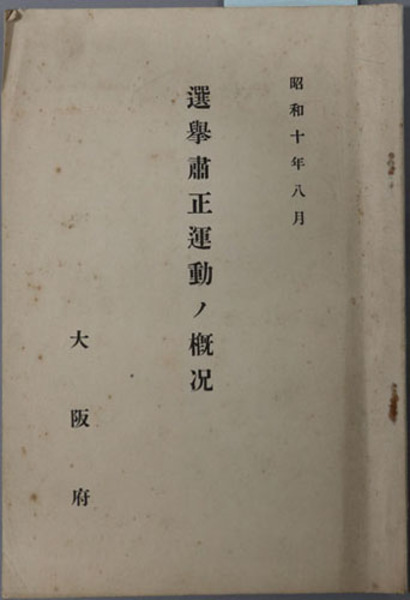 昭和十年八月
選擧肅正運動ノ概況
大阪府